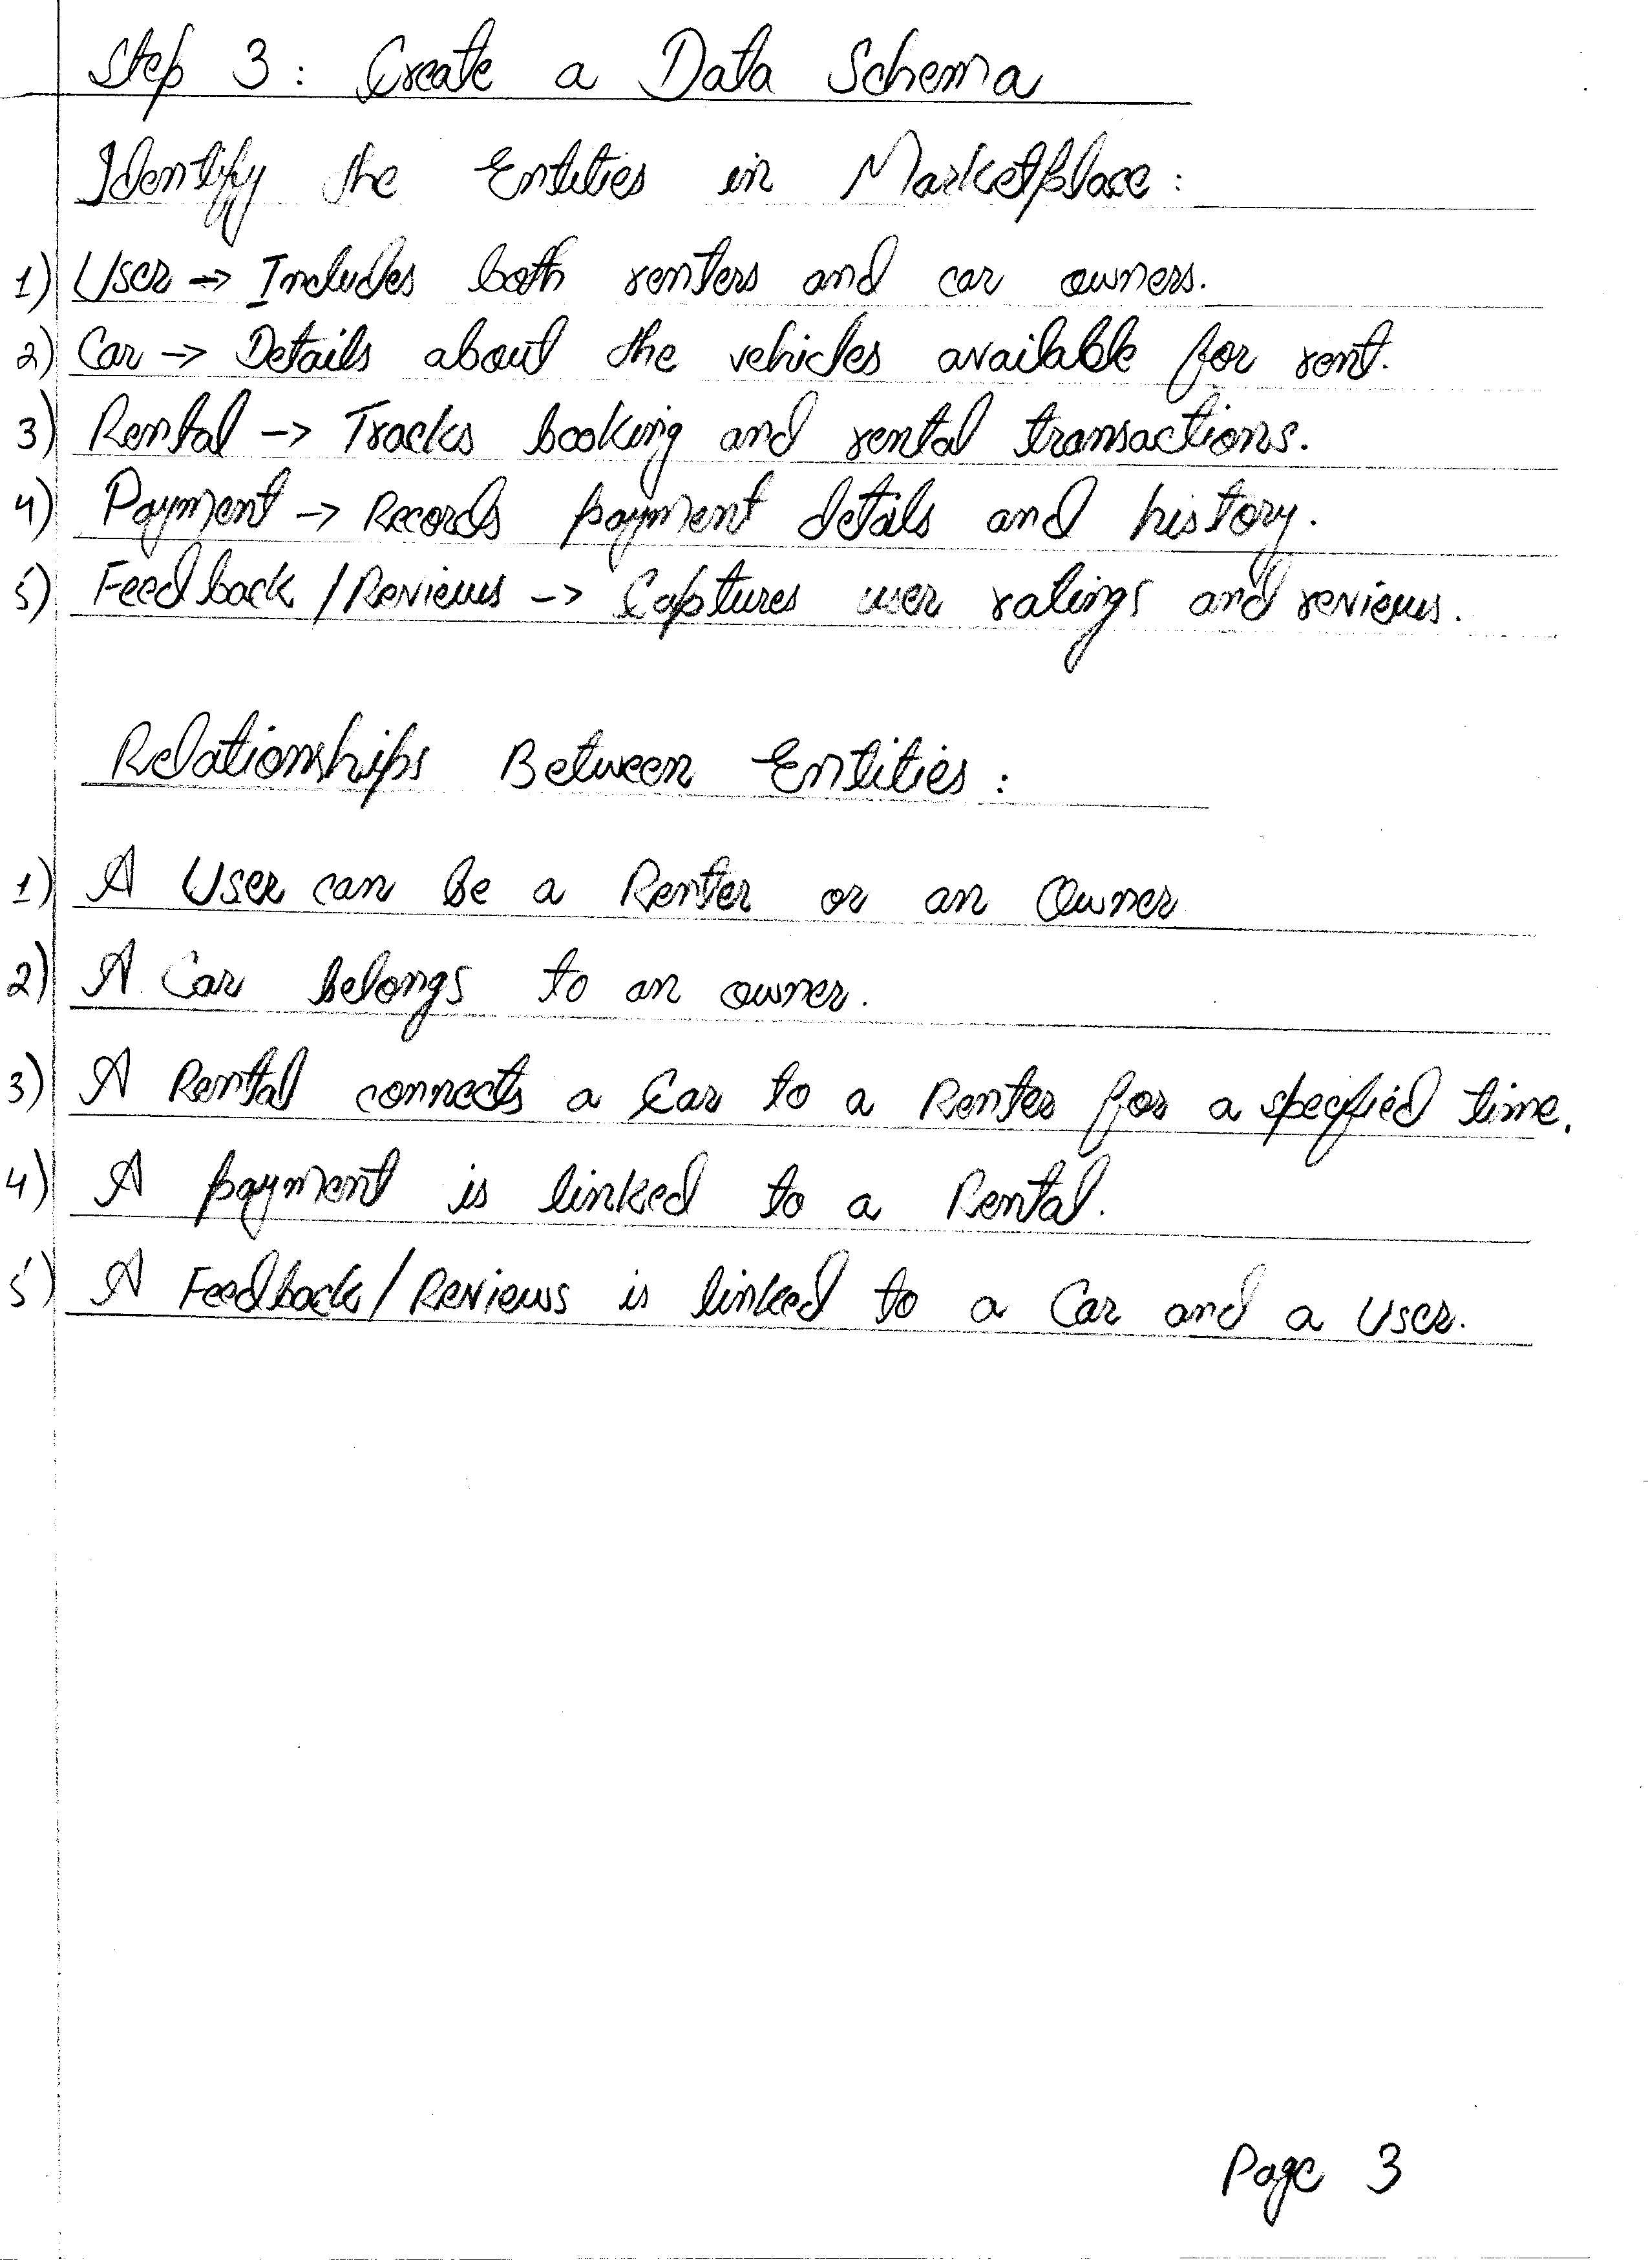 Step 3: Create a Data Schema
Identify the Entities in Marketplace:
1) User -> Includes both renters and car owners.
2) Car -> Details about the vehicles available for rent.
3) Rental -> Tracks booking and rental transactions.
4) Payment -> Records payment details and history.
5) Feedback/Reviews -> Captures user ratings and reviews.
Relationships Between Entities:
1) A User can be a Renter or an Owner
2) A Car belongs to an owner.
3) A Rental connects a Car to a Renter for a specified time.
4) A payment is linked to a Rental.
5) A Feedback/Reviews is linked to a Car and a User.
Page 3